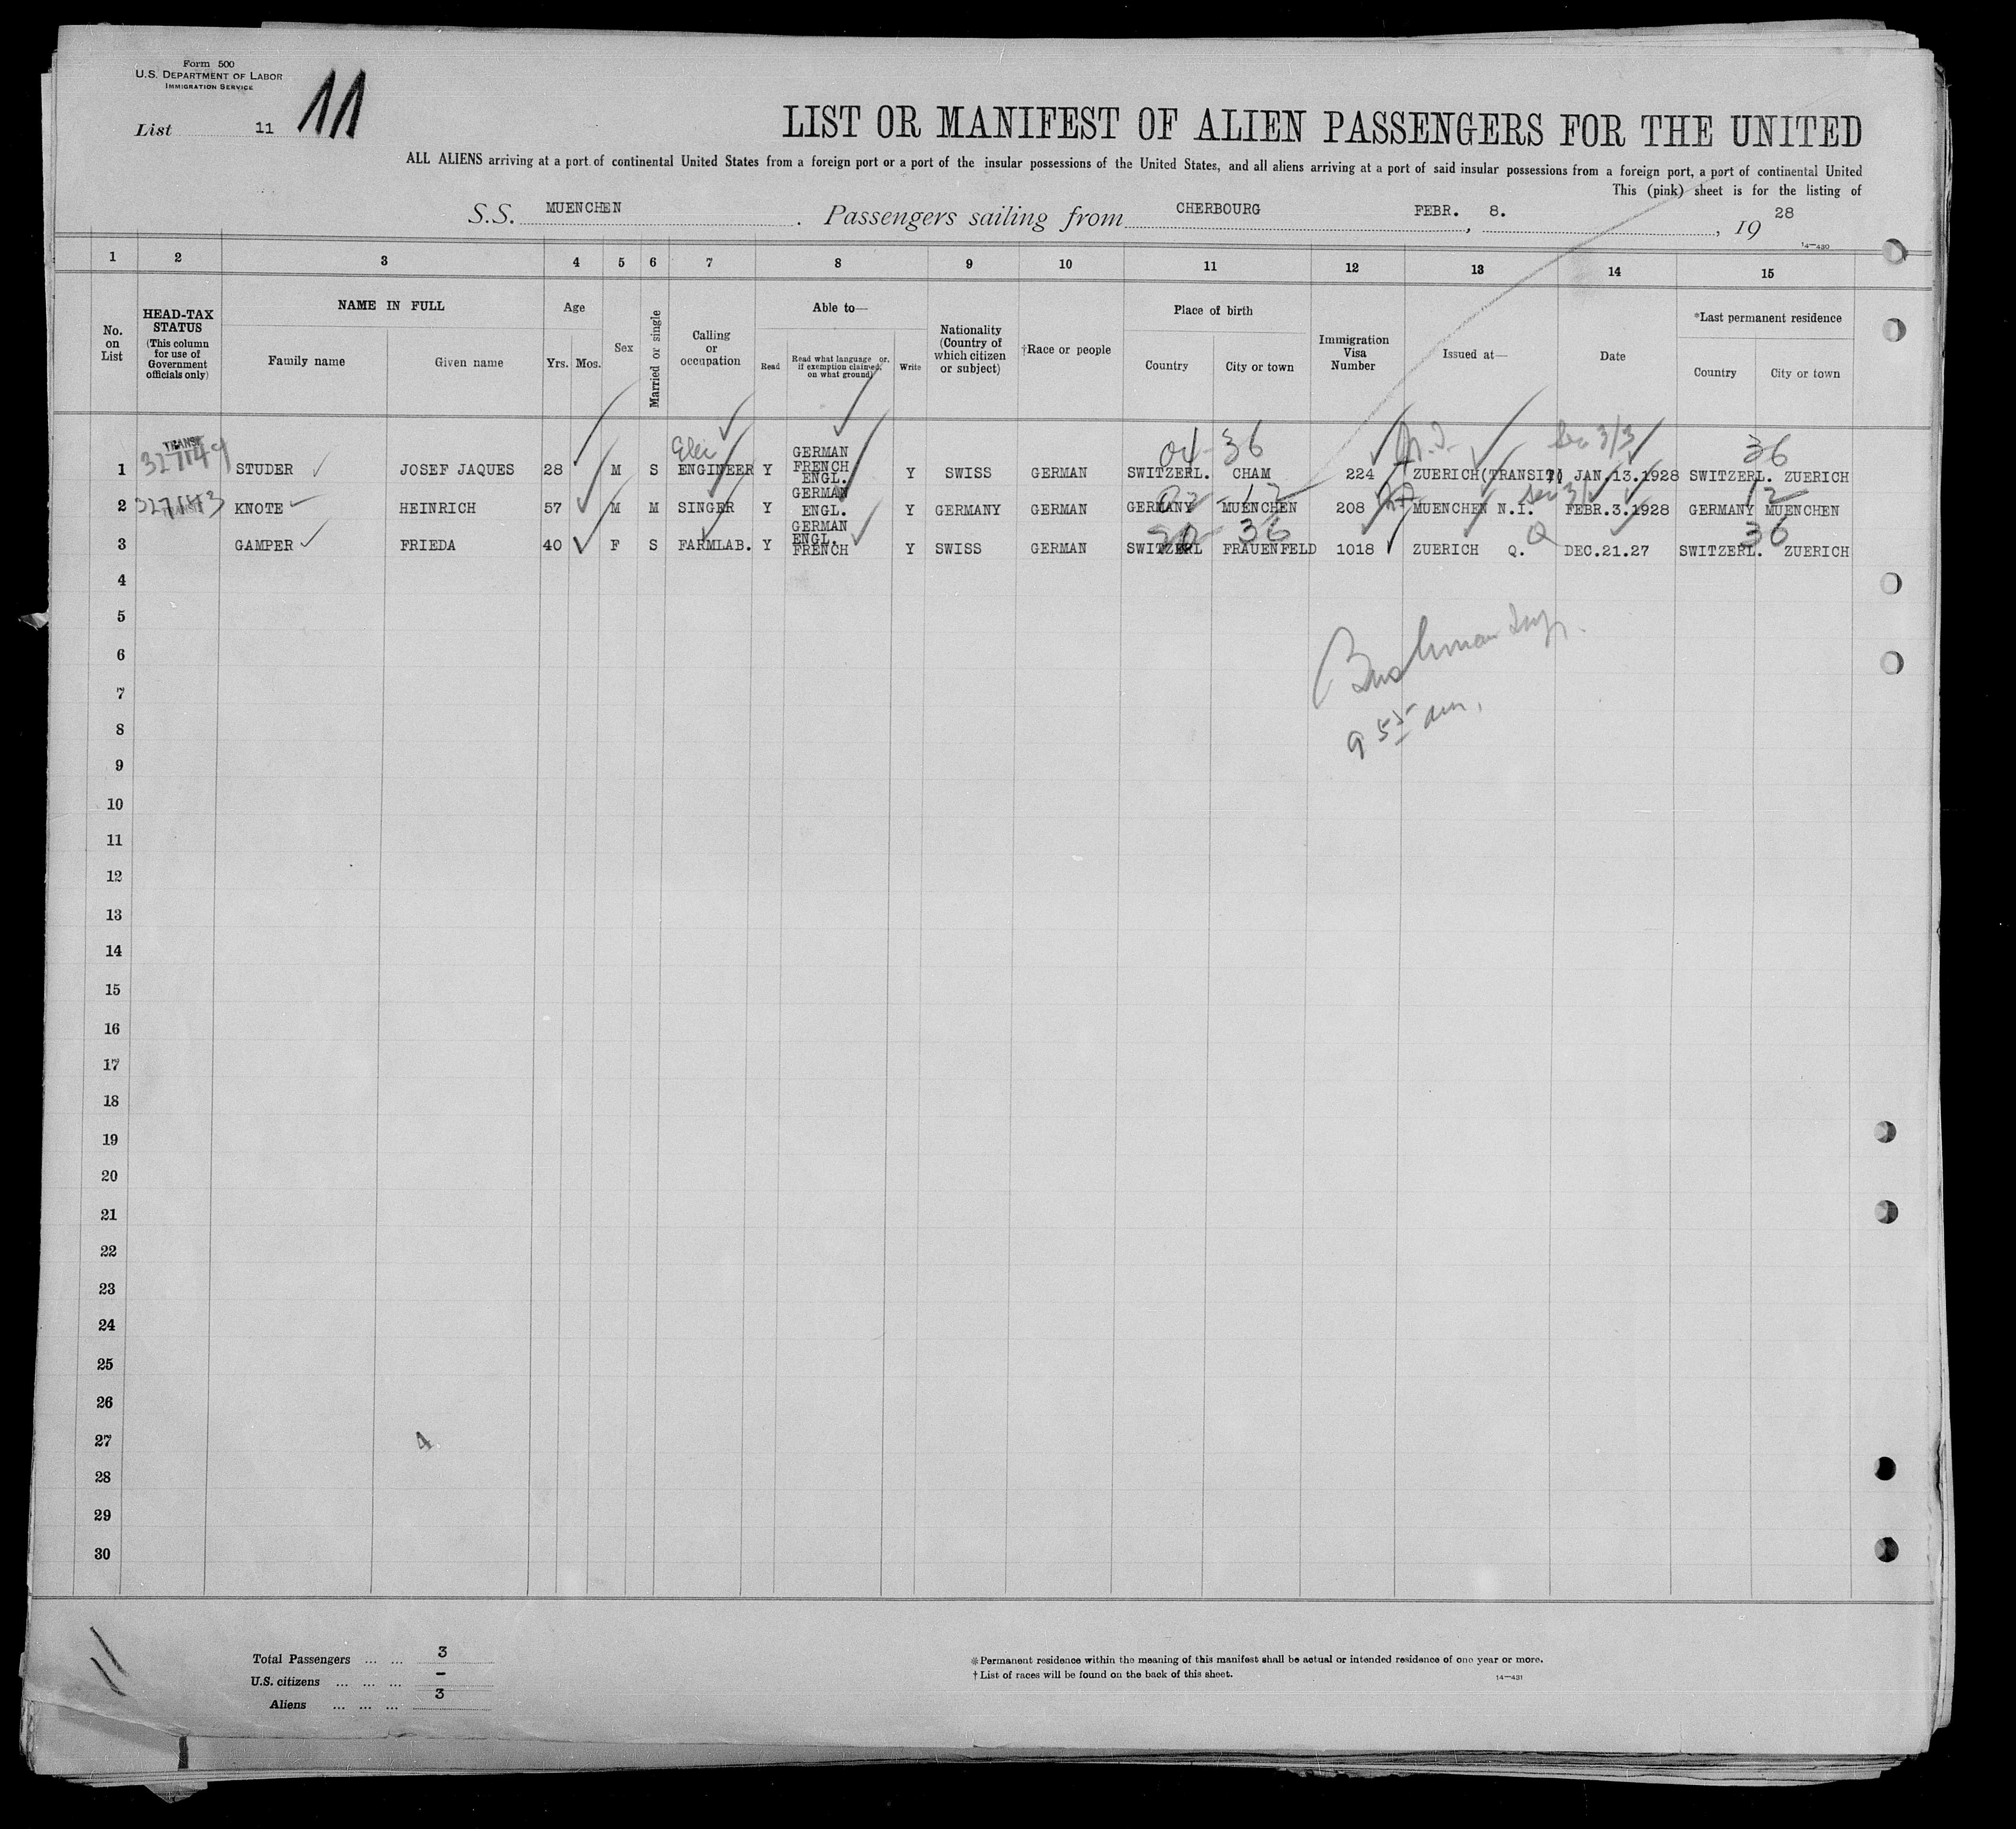 Form 500
U.S. DEPARTMENT OF LABOR
IMMIGRATION SERVICE
List 11
11
LIST OR MANIFEST OF ALIEN PASSENGERS FOR THE UNITED
ALL ALIENS arriving at a port of continental United States from a foreign port or a port of the insular possessions of the United States, and all aliens arriving at a port of said insular possessions from a foreign port, a port of continental United
This (pink) sheet is for the listing of
S.S. MUENCHEN. Passengers sailing from CHERBOURG, FEBR. 8., 1928
14—430
1 2 3 4 5 6 7 8 9 10 11 12 13 14 15
No. on List
HEAD-TAX STATUS (This column for use of Government officials only)
NAME IN FULL
Family name Given name
Age
Yrs. Mos.
Sex
Married or single
Calling or occupation
Able to—
Read
Read what language or, if exemption claimed, on what ground
Write
Nationality (Country of which citizen or subject)
†Race or people
Place of birth
Country City or town
Immigration Visa Number
Issued at—
Date
*Last permanent residence
Country City or town
1 TRANSI 327149 STUDER JOSEF JAQUES 28 M S Elec ENGINEER Y GERMAN FRENCH ENGL. Y SWISS GERMAN SWITZERL. CHAM 04 36 224 N.I. ZUERICH(TRANSIT) Sec 3/3 JAN.13.1928 SWITZERL. ZUERICH 36
2 327143 KNOTE HEINRICH 57 M M SINGER Y GERMAN ENGL. Y GERMANY GERMAN GERMANY MUENCHEN 12 208 MUENCHEN N.I. FEBR.3.1928 GERMANY MUENCHEN 12
3 GAMPER FRIEDA 40 F S FARMLAB. Y GERMAN ENGL. FRENCH Y SWISS GERMAN SWITZERL FRAUENFELD 36 1018 ZUERICH Q. Q DEC.21.27 SWITZERL. ZUERICH 36
4
5
6
7
8
9
10
11
12
13
14
15
16
17
18
19
20
21
22
23
24
25
26
27
28
29
30
9 55 am.
4
11
Total Passengers ... ... 3
U.S. citizens ... ... ... –
Aliens ... ... ... 3
*Permanent residence within the meaning of this manifest shall be actual or intended residence of one year or more.
† List of races will be found on the back of this sheet.
14—431